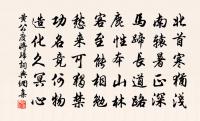 北首寒猶淺
南轅暑正深
馬蹄長道路
鹿性本山林
客至能相勉
愁來可自禁
功名竟何物
造化久冥心
黃公度詩詩詞典網集